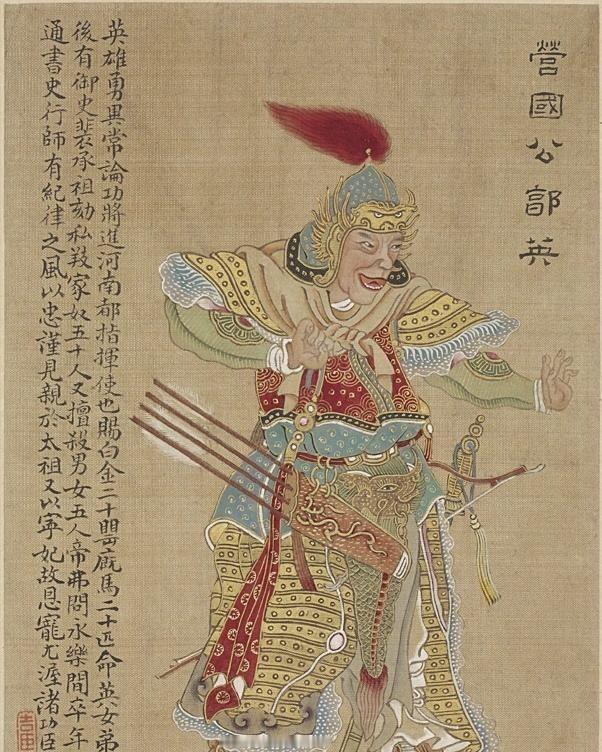 營國公郭英
英雄勇異常論功將進河南都指揮使也賜白金二十罌廐馬二十匹命英女弟
後有御史裴承祖劾私𢼝家奴五十人又擅殺男女五人帝弗問永樂間卒年
通書史行師有紀律之風以忠謹見親於太祖又以寧妃故恩寵尤渥諸功臣